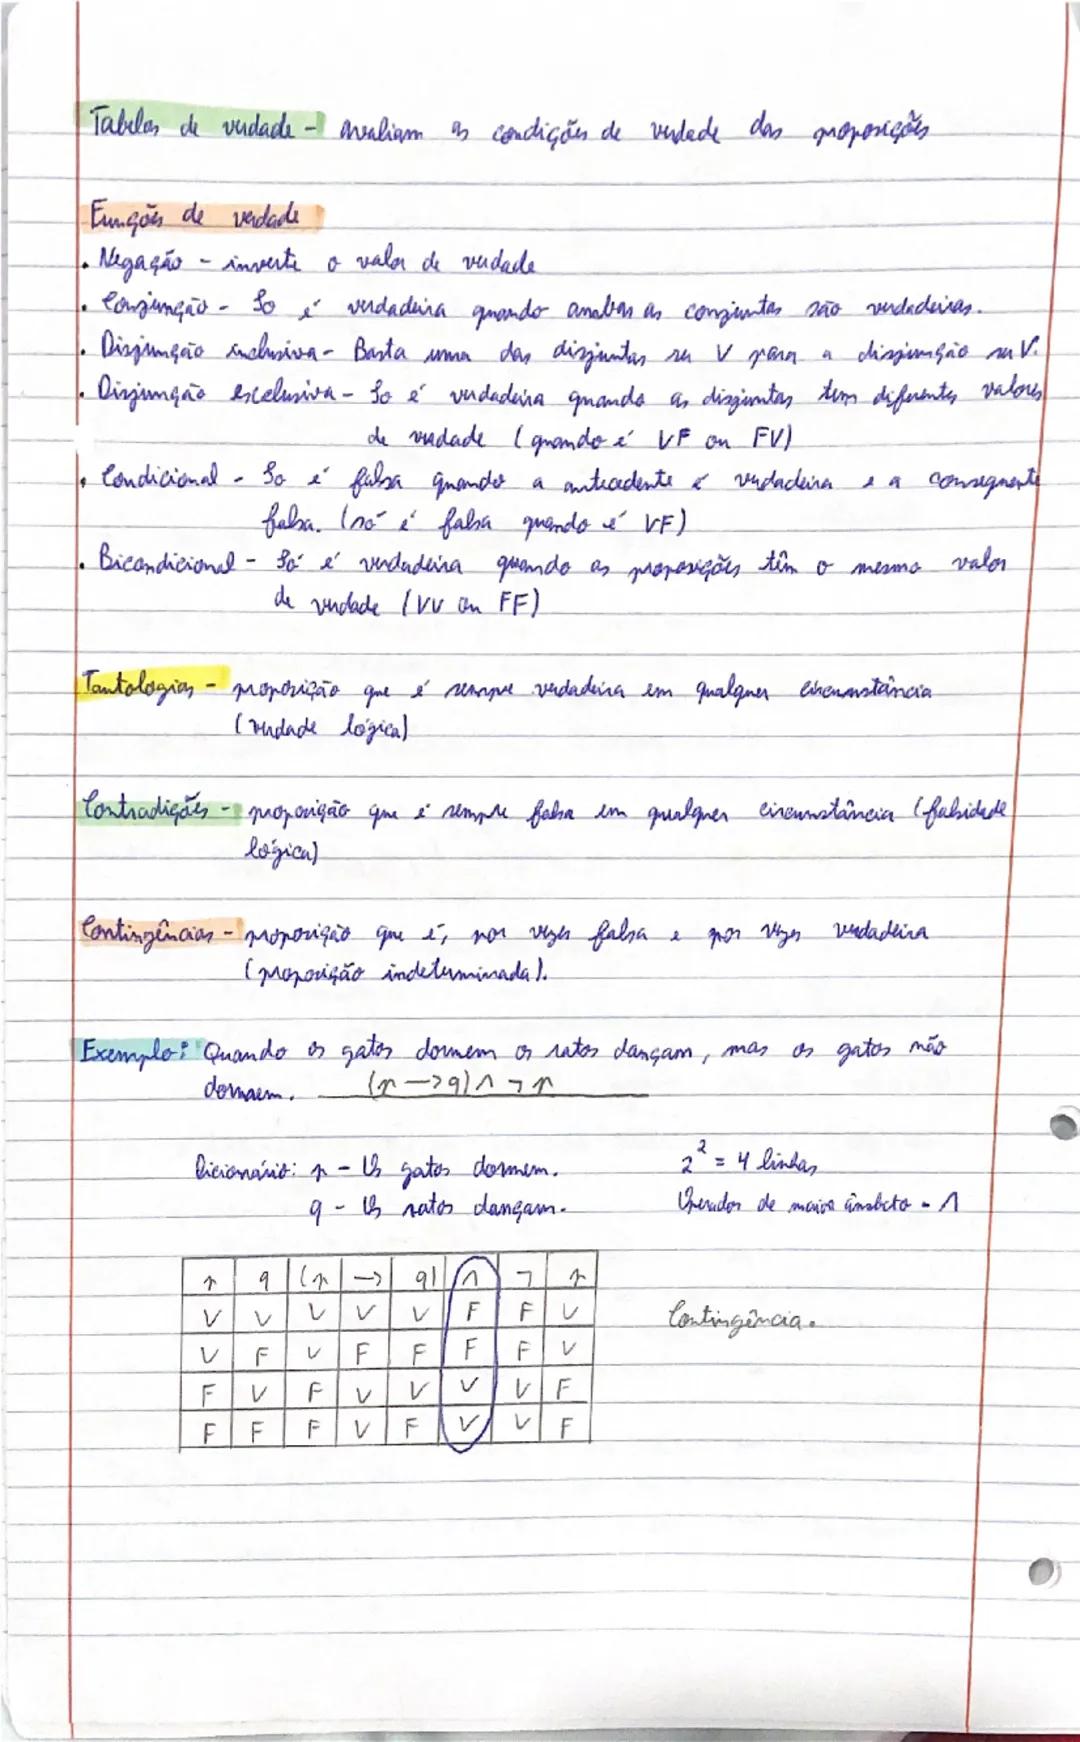 Tabelas de verdade - avaliam as condições de verdade das proposições
Funções de verdade
. Negação - inverte o valor de verdade
. Conjunção - So é verdadeira quando ambas as conjuntas são verdadeiras.
. Disjunção inclusiva - Basta uma das disjuntas ser V para a disjunção ser V.
. Disjunção exclusiva - So é verdadeira quando as disjuntas tem diferentes valores
de verdade (quando é VF ou FV)
. Condicional - So é falsa quando a antecedente é verdadeira e a consequente
falsa. (só é falsa quando é VF)
. Bicondicional - Só é verdadeira quando as proposições têm o mesmo valor
de verdade (VV ou FF)
Tautologias - proposição que é sempre verdadeira em qualquer circunstância
(verdade lógica)
Contradições - proposição que é sempre falsa em qualquer circunstância (falsidade
lógica)
Contingências - proposição que é, por vezes falsa e por vezes verdadeira
(proposição indeterminada).
Exemplo: Quando os gatos dormem os ratos dançam, mas os gatos não
dormem. (p —> q) ∧ ¬ p
Dicionário: p - Os gatos dormem. 2² = 4 linhas
q - Os ratos dançam. Operador de maior âmbito - ∧
p q (p —> q) ∧ ¬ p
V V V V V F F V Contingência.
V F V F F F F V
F V F V V V V F
F F F V F V V F